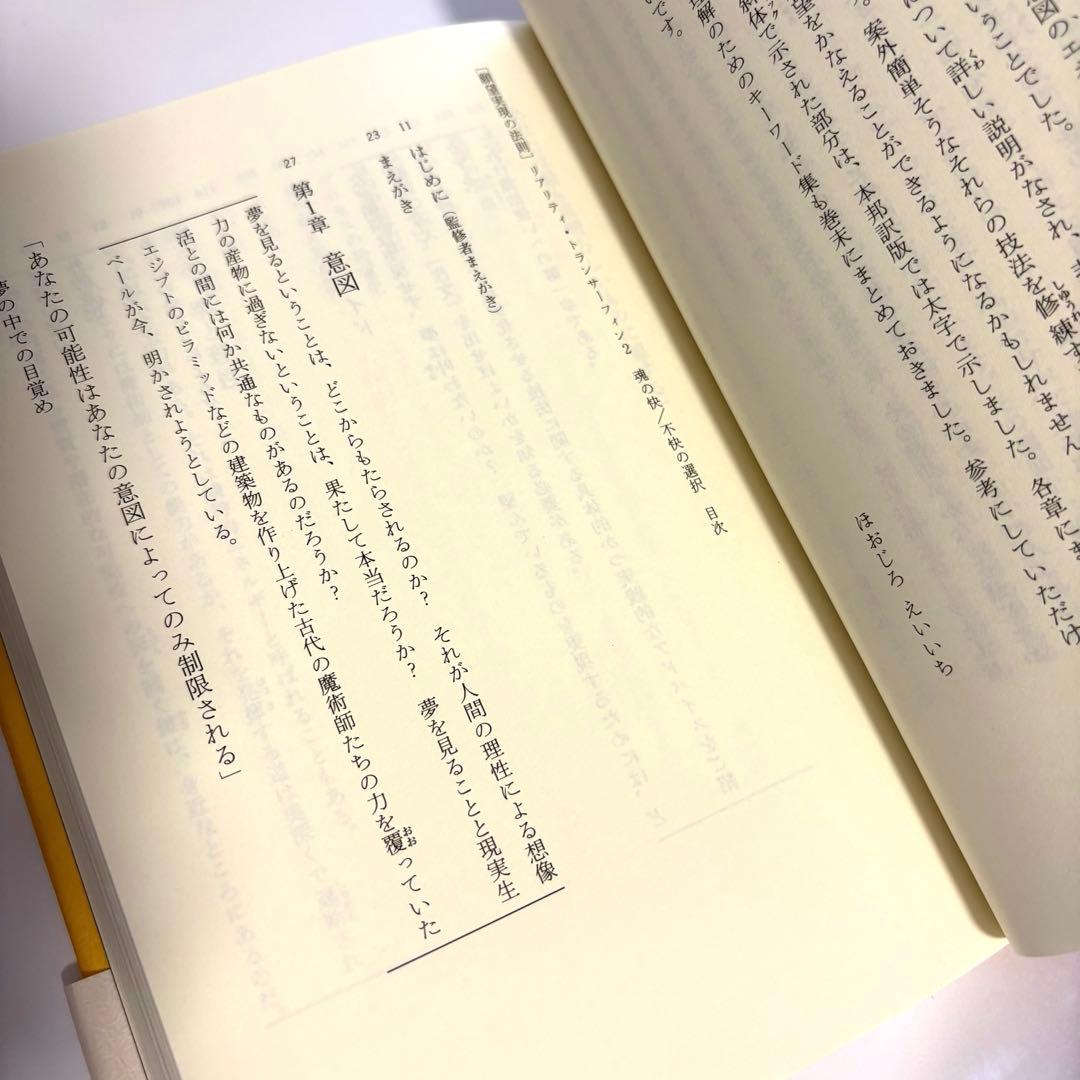 図のエ
いうことでした。
について詳しい説明がなされ、
くわ
。案外簡単そうなそれらの技法を修練す
しゅうれん
望をかなえることができるようになるかもしれません
解体で示された部分は、本邦訳版では太字で示しました。各章にま
理解のためのキーワード集も巻末にまとめておきました。参考にしていただけ
いです。
ほおじろ えいいち
「願望実現の法則」リアリティ・トランサーフィン2 魂の快/不快の選択 目次
11 はじめに(監修者まえがき)
23 まえがき
27 第1章 意図
夢を見るということは、どこからもたらされるのか? それが人間の理性による想像
力の産物に過ぎないということは、果たして本当だろうか? 夢を見ることと現実生
活との間には何か共通なものがあるのだろうか?
エジプトのピラミッドなどの建築物を作り上げた古代の魔術師たちの力を覆っていた
おお
ベールが今、明かされようとしている。
「あなたの可能性はあなたの意図によってのみ制限される」
夢の中での目覚め